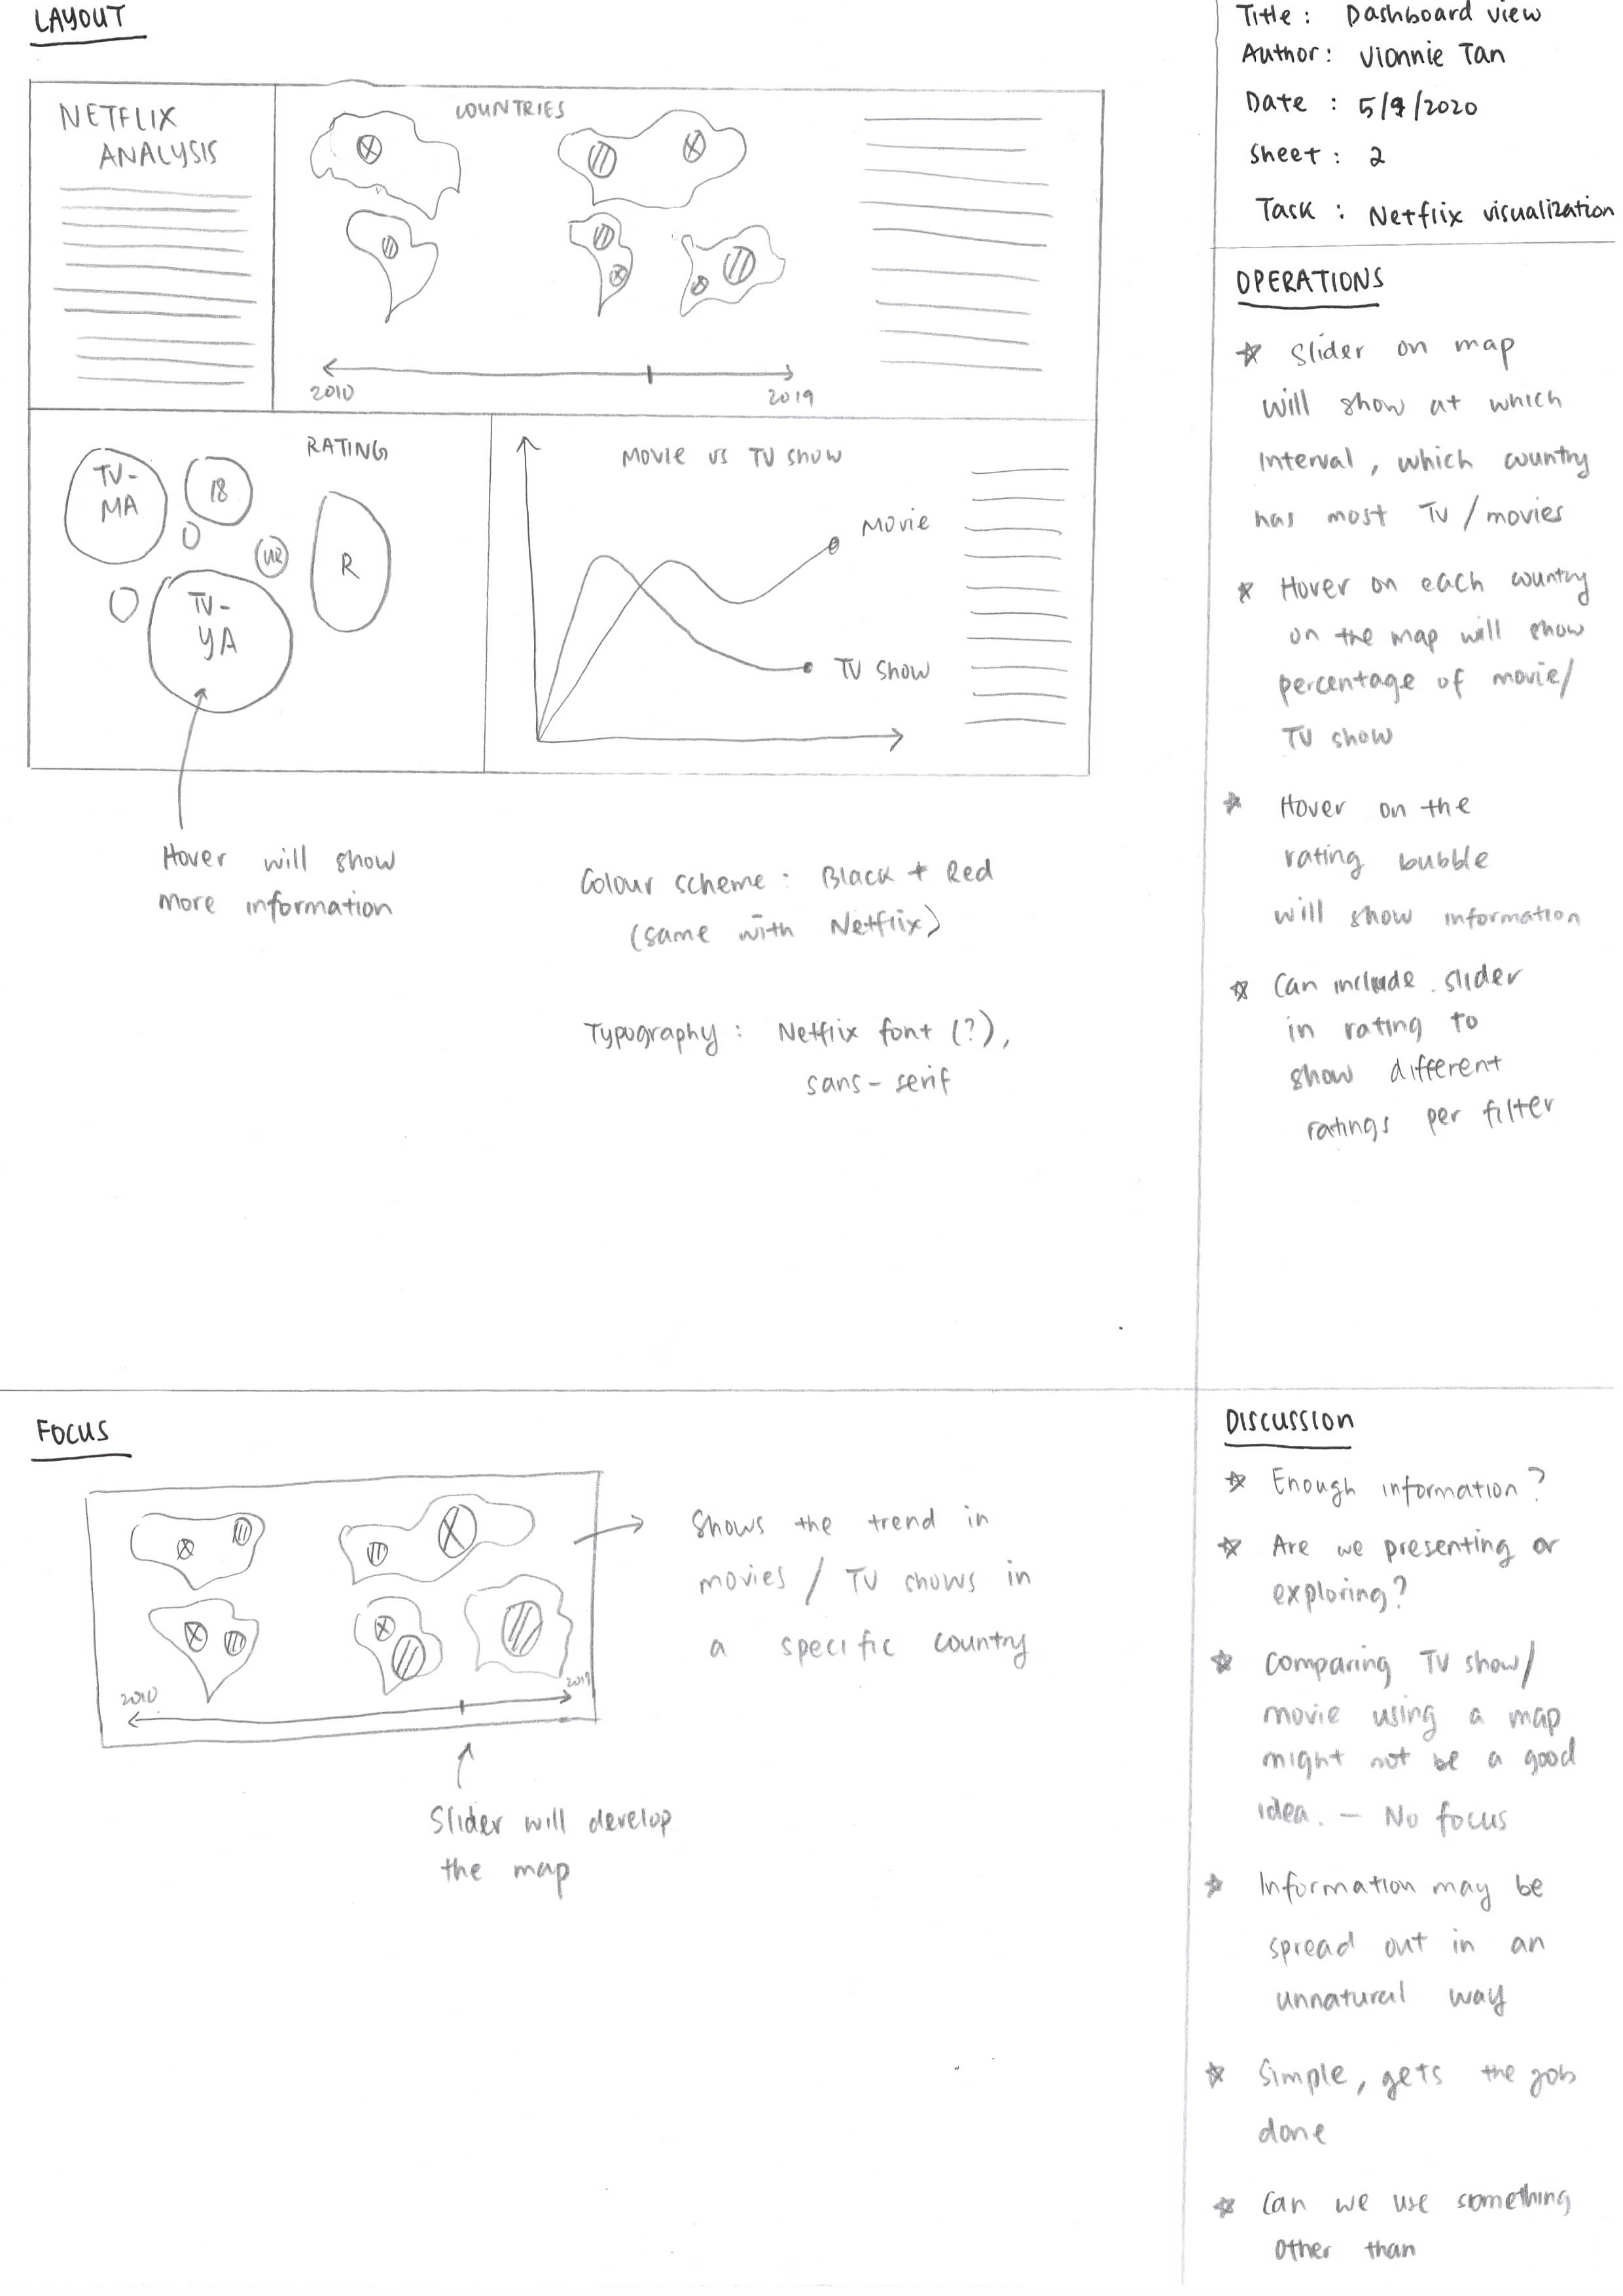 LAYOUT
NETFLIX
ANALYSIS
COUNTRIES
2010
2019
RATING
TV-
MA
18
UR
R
TV-
YA
MOVIE VS TV SHOW
MOVIE
TV SHOW
Hover will show
more information
Colour scheme : Black + Red
(same with Netflix)
Typography : Netflix font (?),
sans-serif
Title : Dashboard view
Author : Vionnie Tan
Date : 5/9/2020
Sheet : 2
Task : Netflix visualization
OPERATIONS
☆ Slider on map
will show at which
interval, which country
has most TV / movies
☆ Hover on each country
on the map will show
percentage of movie/
TV show
☆ Hover on the
rating bubble
will show information
☆ Can include slider
in rating to
show different
ratings per filter
FOCUS
2010
2019
Shows the trend in
movies / TV shows in
a specific country
Slider will develop
the map
DISCUSSION
☆ Enough information?
☆ Are we presenting or
exploring?
☆ Comparing TV show/
movie using a map
might not be a good
idea. – No focus
☆ Information may be
spread out in an
unnatural way
☆ Simple, gets the job
done
☆ Can we use something
other than